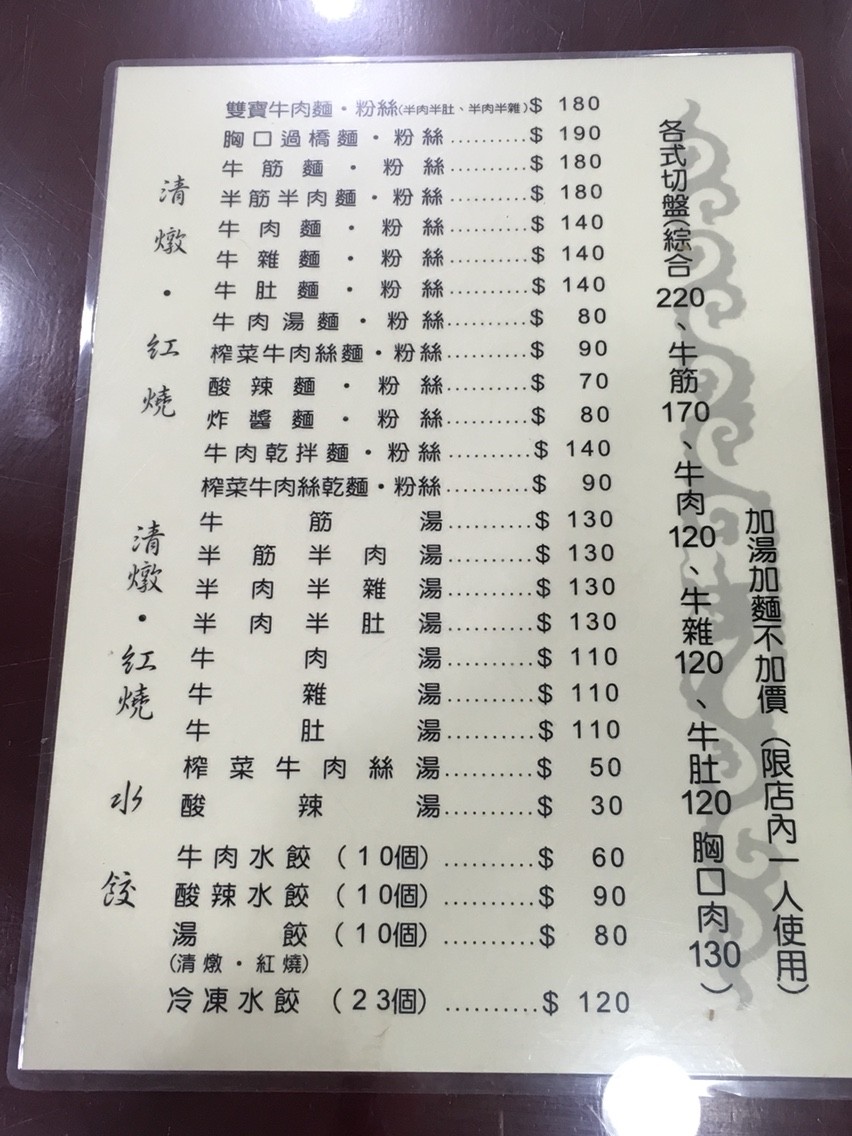 清燉・紅燒
雙寶牛肉麵・粉絲(半肉半肚、半肉半雜)$ 180
胸口過橋麵・粉絲..........$ 190
牛筋麵・粉絲..........$ 180
半筋半肉麵・粉絲..........$ 180
牛肉麵・粉絲..........$ 140
牛雜麵・粉絲..........$ 140
牛肚麵・粉絲..........$ 140
牛肉湯麵・粉絲..........$ 80
榨菜牛肉絲麵・粉絲..........$ 90
酸辣麵・粉絲..........$ 70
炸醬麵・粉絲..........$ 80
牛肉乾拌麵・粉絲..........$ 140
榨菜牛肉絲乾麵・粉絲..........$ 90
清燉・紅燒
牛筋湯..........$ 130
半筋半肉湯..........$ 130
半肉半雜湯..........$ 130
半肉半肚湯..........$ 130
牛肉湯..........$ 110
牛雜湯..........$ 110
牛肚湯..........$ 110
榨菜牛肉絲湯..........$ 50
酸辣湯..........$ 30
水餃
牛肉水餃(10個)..........$ 60
酸辣水餃(10個)..........$ 90
湯餃(10個)..........$ 80
(清燉・紅燒)
冷凍水餃(23個)..........$ 120
各式切盤(綜合220、牛筋170、牛肉120、牛雜120、牛肚120胸口肉130)
加湯加麵不加價(限店內一人使用)